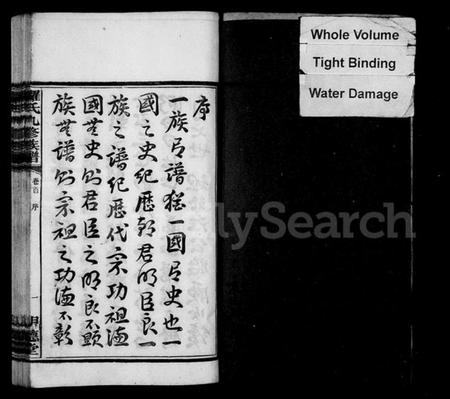 Whole Volume
Tight Binding
Water Damage
序
一族有譜猶一國有史也一
國之史紀歷朝君明臣良一
族之譜紀歷代宗功祖德
國無史則君臣之明良不顯
族無譜則宗祖之功德不彰
氏九修族譜
卷首 序
一
德堂
lySearch